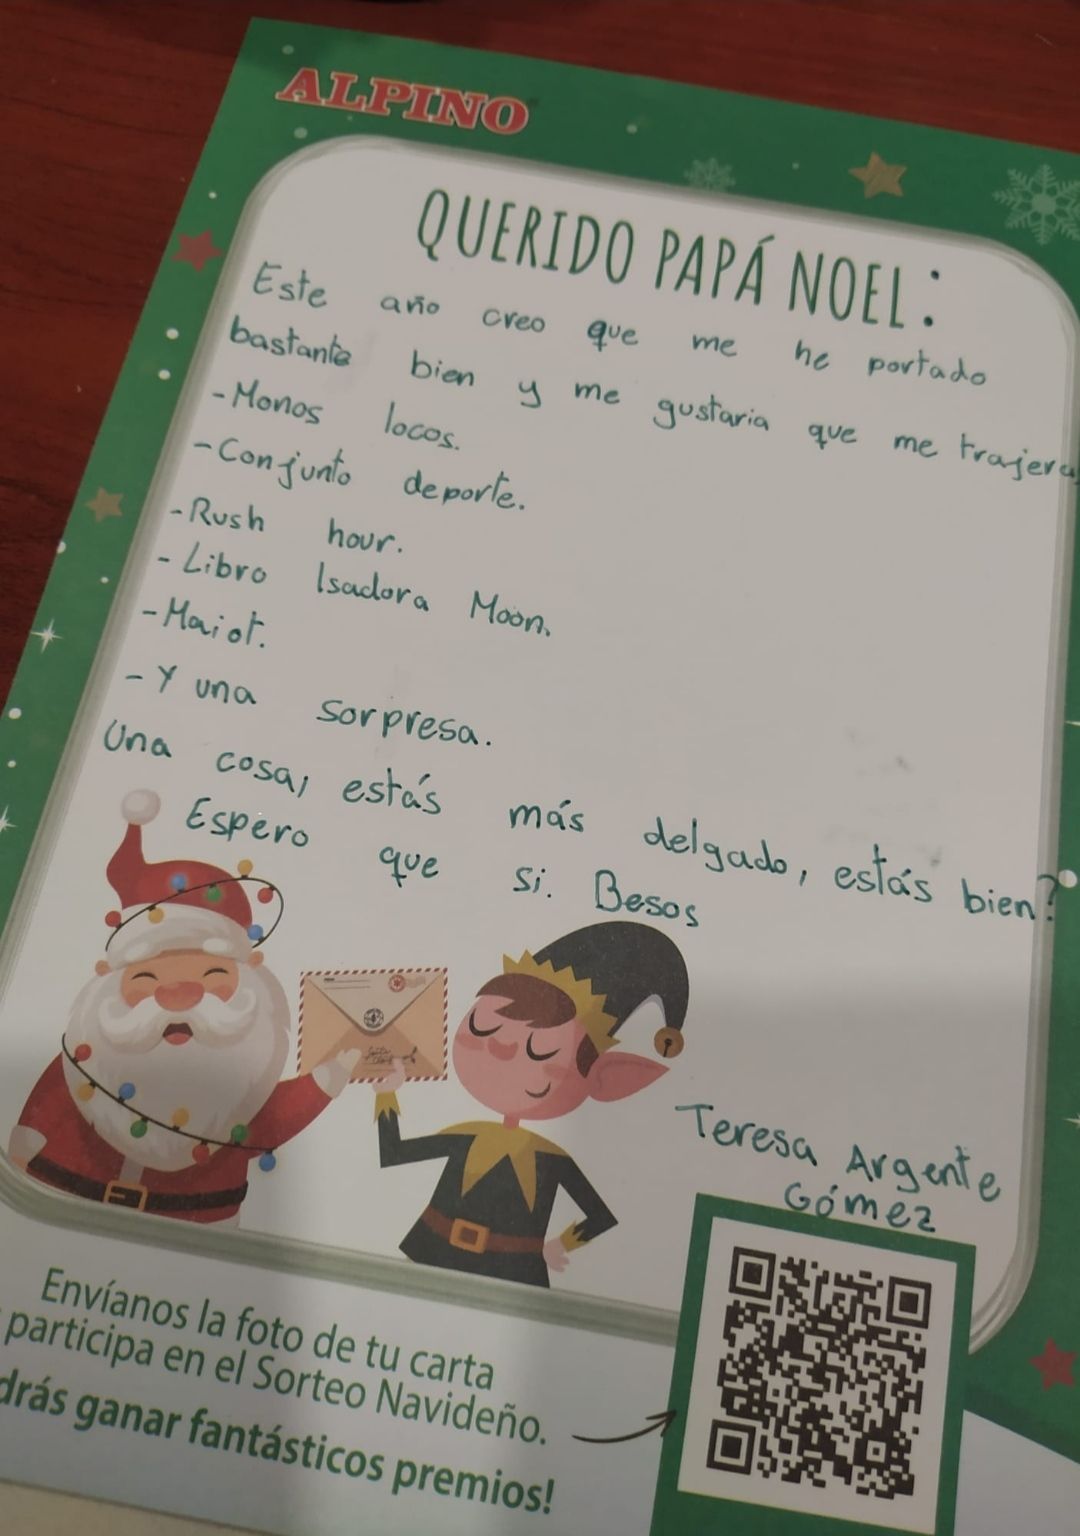 ALPINO
QUERIDO PAPÁ NOEL:
Este año creo que me he portado
bastante bien y me gustaria que me trajera
-Monos locos.
-Conjunto deporte.
-Rush hour.
-Libro Isadora Moon.
-Maiot.
-Y una sorpresa.
Una cosa, estás más delgado, estás bien?
Espero que si. Besos
Teresa Argente
Gómez
Envíanos la foto de tu carta
participa en el Sorteo Navideño.
drás ganar fantásticos premios!